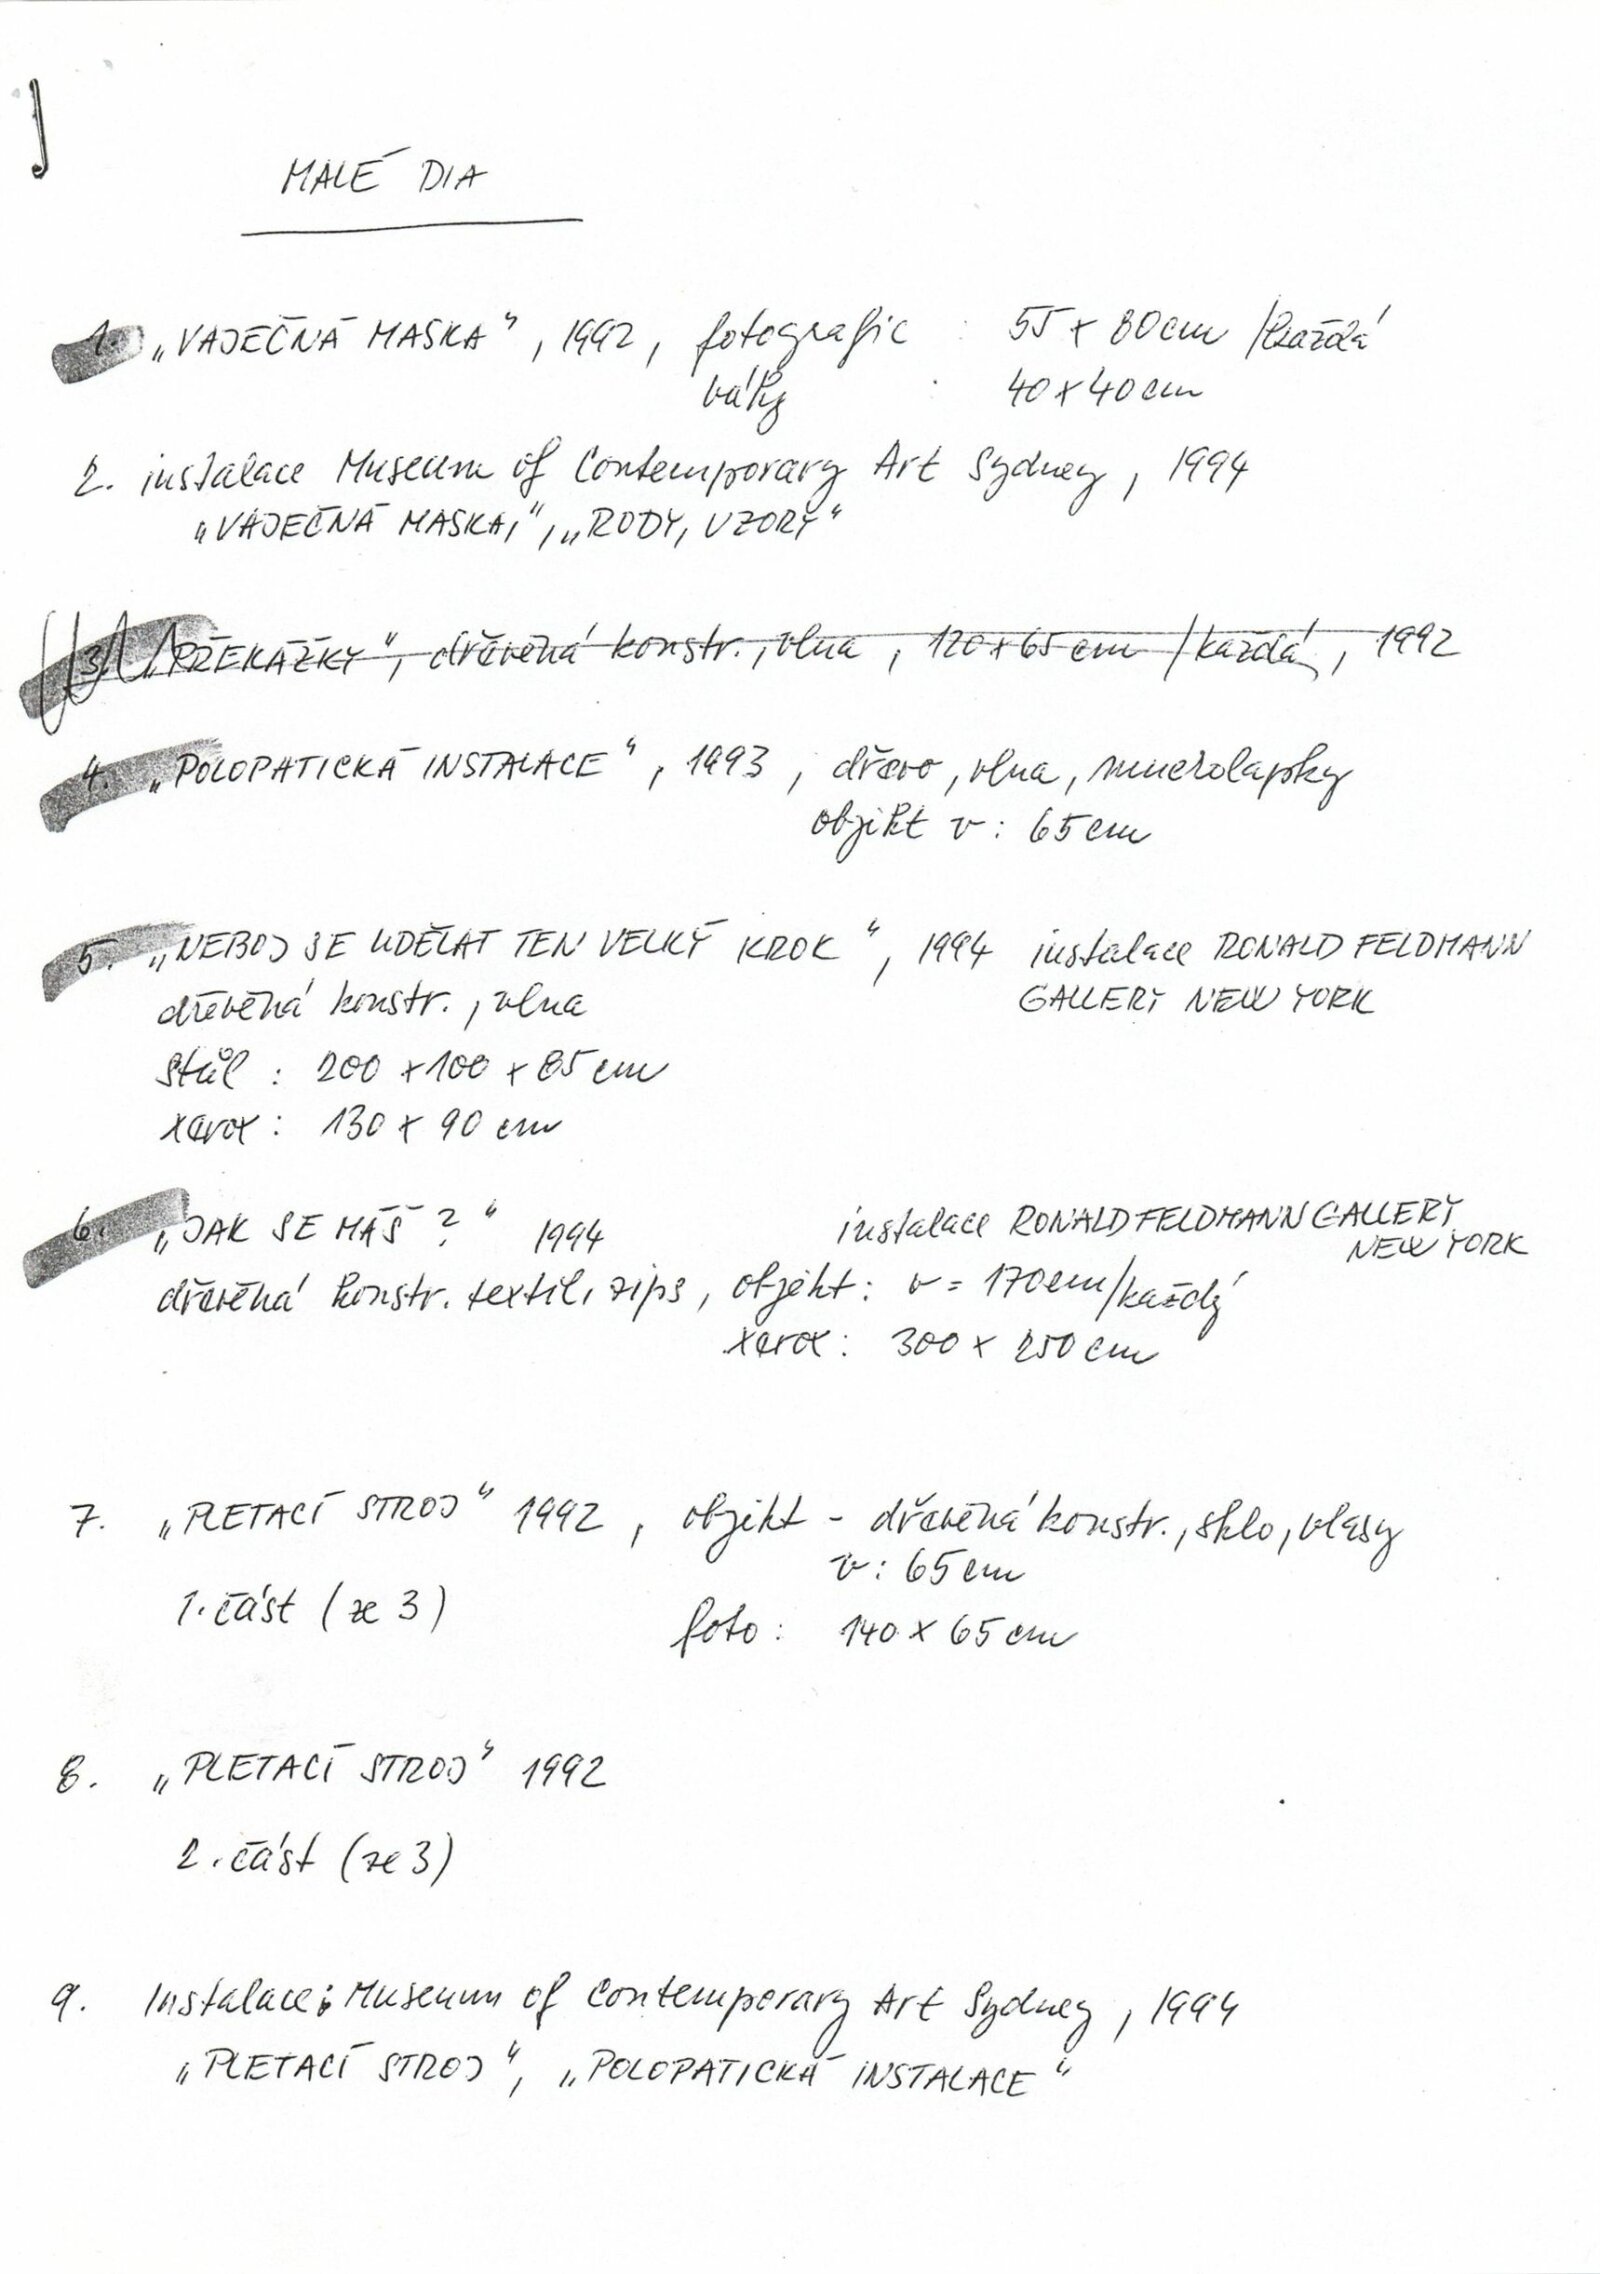 MALÉ DIA
1. „VAJEČNÁ MASKA“, 1992, fotografie : 55 x 80 cm /každá
války : 40 x 40 cm
2. instalace Museum of Contemporary Art Sydney, 1994
„VAJEČNÁ MASKA,“, „RODY, VZORY“
3. „PŘEKÁŽKY“, dřěvěná konstr., vlna, 120 x 65 cm /každá, 1992
4. „POLOPATICKÁ INSTALACE“, 1993, dřevo, vlna, mucholapky
objekt v: 65 cm
5. „NEBOJ SE UDĚLAT TEN VELKÝ KROK“, 1994 instalace RONALD FELDMANN
GALLERY NEW YORK
dřevěná konstr., vlna
stůl : 200 x 100 x 85 cm
xerox : 130 x 90 cm
6. „JAK SE MÁŠ ?“ 1994 instalace RONALD FELDMANN GALLERY
NEW YORK
dřevěná konstr. textil, zips, objekt : v = 170 cm/každý
xerox : 300 x 250 cm
7. „PLETACÍ STROJ“ 1992, objekt - dřevěná konstr., sklo, vlasy
v : 65 cm
1. část (ze 3)
foto : 140 x 65 cm
8. „PLETACÍ STROJ“ 1992
2. část (ze 3)
9. Instalace: Museum of Contemporary Art Sydney, 1994
„PLETACÍ STROJ“, „POLOPATICKÁ INSTALACE“